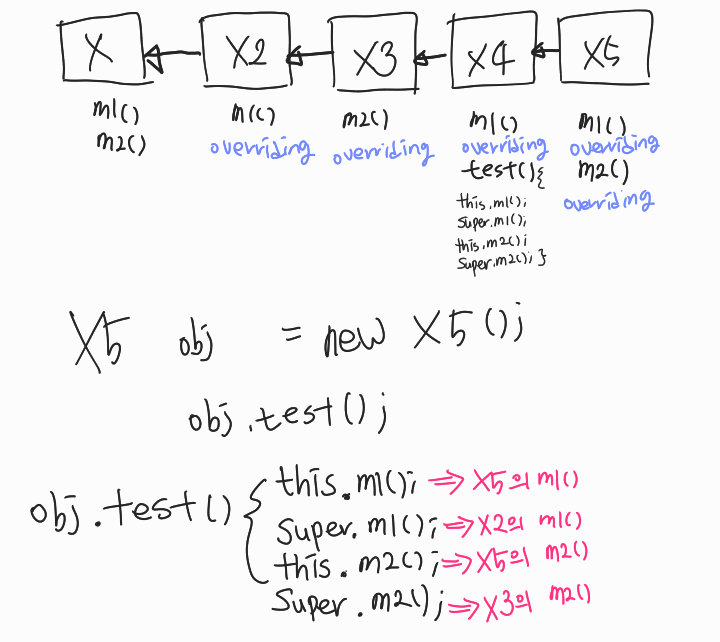 X X2 X3 X4 X5
m1() m1() m2() m1() m1()
m2() overriding overriding overriding overriding
test(){ m2()
this.m1(); overriding
super.m1();
this.m2();
super.m2(); }
X5 obj = new X5();
obj.test();
obj.test() { this.m1(); ⇒ X5의 m1()
super.m1(); ⇒ X2의 m1()
this.m2(); ⇒ X5의 m2()
super.m2(); ⇒ X3의 m2()